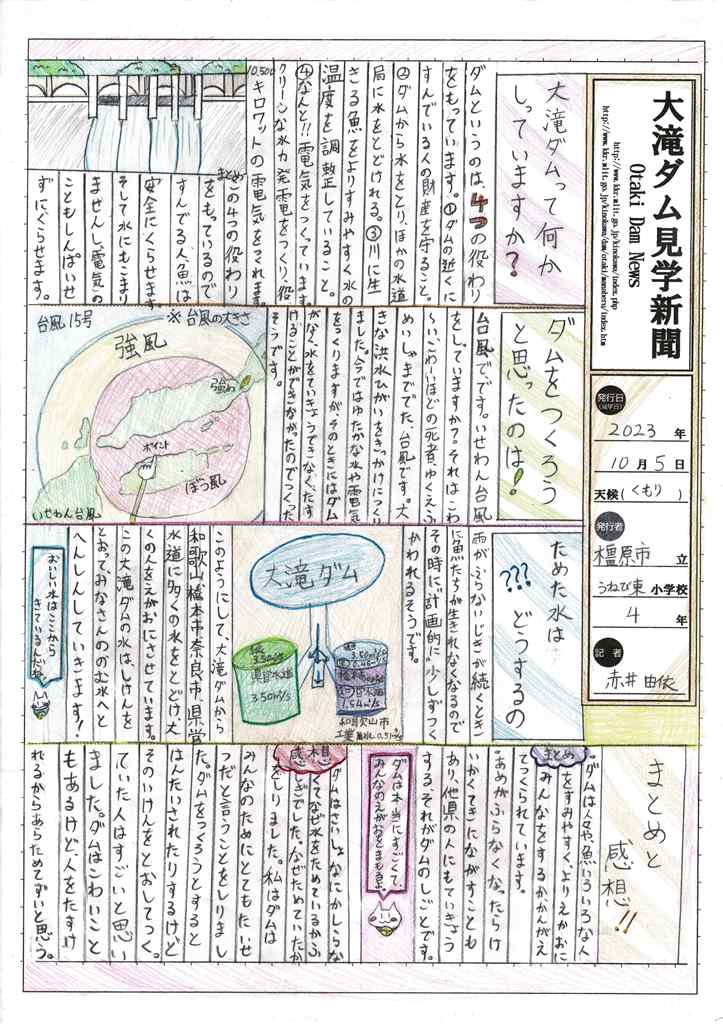 大滝ダム見学新聞
Otaki Dam News
発行日
(見学日)
2023年
10月5日
天候(くもり)
発行者
橿原市立
うねび東小学校
4年
記者
赤井由依
大滝ダムって何か
しっていますか?
ダムというのは、4つの役わり
をもっています。①ダムの近くに
すんでいる人の財産を守ること。
②ダムから水をとり、ほかの水道
局に水をとどける。③川に生
きる魚をよりすみやすく水の
温度を調整していること。
④なんと!!電気をつくっています。
クリーンな水力発電をつくり、役
10,500キロワットの電気をつくれます。
まとめこの4つの役わり
をもっているので
すんでる人、魚は
安全にくらせます。
そして水にもこまり
ませんし、電気の
こともしんぱいせ
ずにくらせます。
ダムをつくろう
と思ったのは!
台風でです。いせわん台風
をしていますか?それはこわ
〜い、こわーいほどの死者、ゆくえふ
めいしゃまででた、台風です。大
きな洪水ひがいをきっかけにつくり
ました。今ではゆたかな水や電気
をつくりますが、そのときにはダム
がなく、水をていきょうできなく、たす
けることができなかったのでつくった
そうです。
※台風の大きさ
台風15号
強風
強風
ポイント
ぼう風
いせわん台風
ためた水は
???どうするの
雨がふらないじきが続くとき
に魚たちが生きれなくなるので
その時に"計画的に"少しずつつ
かわれるそうです。
大滝ダム
県営水道
3.50m³/s
和歌山市
このようにして、大滝ダムから
和歌山、橋本市、奈良市、県営
水道に多くの水をとどけ、大
くの人をえがおにさせています。
この大滝ダムの水は、しけんを
とおってみなさんののむ水へと
へんしんしていきます!
おいしい水はここから
きているんだね。
まとめと
感想!!
まとめ
・ダムは人々や魚いろいろな人
をすみやすく、よりえがおに
みんなをするかんがえ
てつくられています。
・あめがふらなくなったらけ
いかくてきにながすことも
あり、他県の人にもていきょう
する、それがダムのしごとです。
ダムは本当にすごくて、
みんなのえがおをまもるよ。
感想
ダムはさいしょなにかしらな
くてなぜ水をためているかふ
しぎでした。なぜためていたか
をしりました。私はダムは
みんなのためにとてもたいせ
つだと言うことをしりまし
た。ダムをつくろうとすると
はんたいされたりするけど
そのいけんをとおしてつく。
ていた人はすごいと思い
ました。ダムはこわいこと
もあるけど、人をたすけ
れるからあらためてすごいと思う。